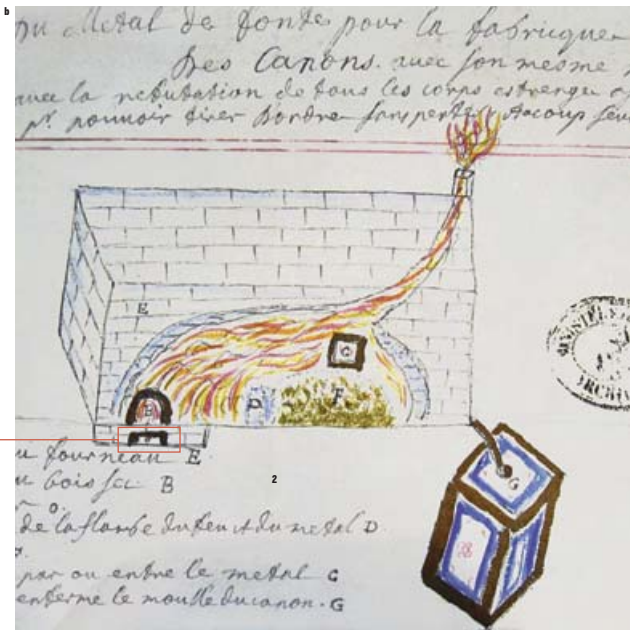 b
du Metal de fontes pour la fabrique
Des Canons. avec son mesme
avec la refutation de tous les corps estrenge
pr. pouvoir tirer dordre sans perte
E
C
B
D
F
G
u fourneau E
u bois sec B
2
de la flambe du feu et du metal D
par ou entre le metal C
enferme le moulle du canon. G